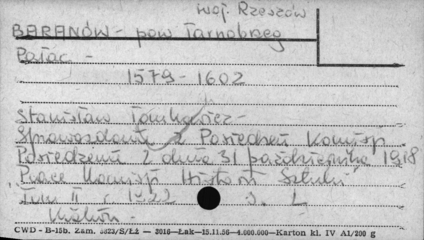 woj. Rzeszów
BARANÓW - pow Tarnobrzeg
Pałac -
1579 - 1602
Stanisław Tomkowicz -
Sprawozdania z Posiedzeń Komisji
Posiedzenie z dnia 31 października 1918
"Prace Komisji Historii Sztuki"
Tom II, 1922 s. L
Kraków -
CWD - B-15b. Zam. 5823/S/Łż — 2016—Łak—15.11.56—4.000.000—Karton kl. IV A1/200 g